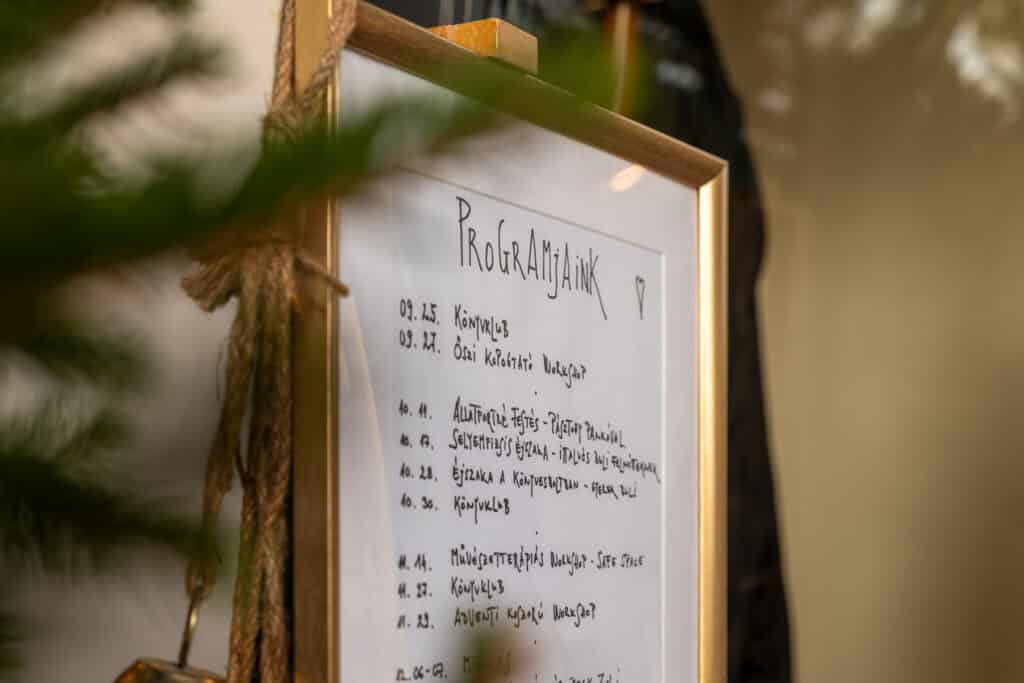 PROGRAMJAINK
09. 25. KÖNYVKLUB
09. 27. ŐSZI KOPOGTATÓ WORKSHOP
10. 11. ÁLLATPORTRÉ FESTÉS - PÁSZTORY PANKÁVAL
10. 17. SELYEMPIZSIS ÉJSZAKA - ITALOS BULI FELNŐTTEKNEK
10. 28. ÉJSZAKA A KÖNYVESBOLTBAN - GYEREK BULI
10. 30. KÖNYVKLUB
11. 14. MŰVÉSZETTERÁPIÁS WORKSHOP - SAFE SPACE
11. 27. KÖNYVKLUB
11. 29. ADVENTI KOSZORÚ WORKSHOP
12. 06-07.